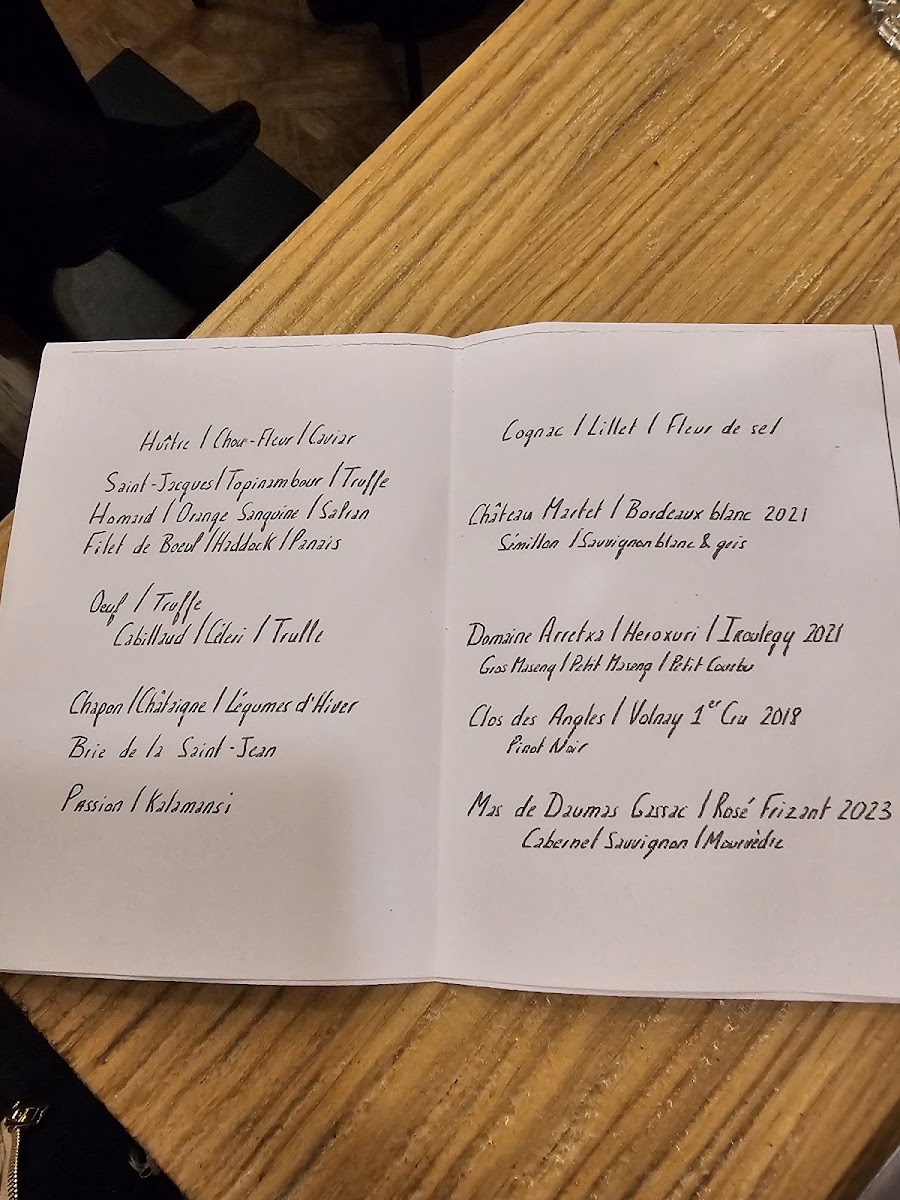 Huître / Chou-Fleur / Caviar
Saint-Jacques / Topinambour / Truffe
Homard / Orange Sanguine / Safran
Filet de Boeuf / Haddock / Panais
Oeuf / Truffe
Cabillaud / Céleri / Truffe
Chapon / Châtaigne / Légumes d'Hiver
Brie de la Saint-Jean
Passion / Kalamansi
Cognac / Lillet / Fleur de sel
Château Martet / Bordeaux blanc 2021
Sémillon / Sauvignon blanc & gris
Domaine Arretxa / Heroxuri / Iroulegy 2021
Gros Maseng / Petit Maseng / Petit Courbu
Clos des Angles / Volnay 1er Cru 2018
Pinot Noir
Mas de Daumas Gassac / Rosé Frizant 2023
Cabernet Sauvignon / Mourvèdre